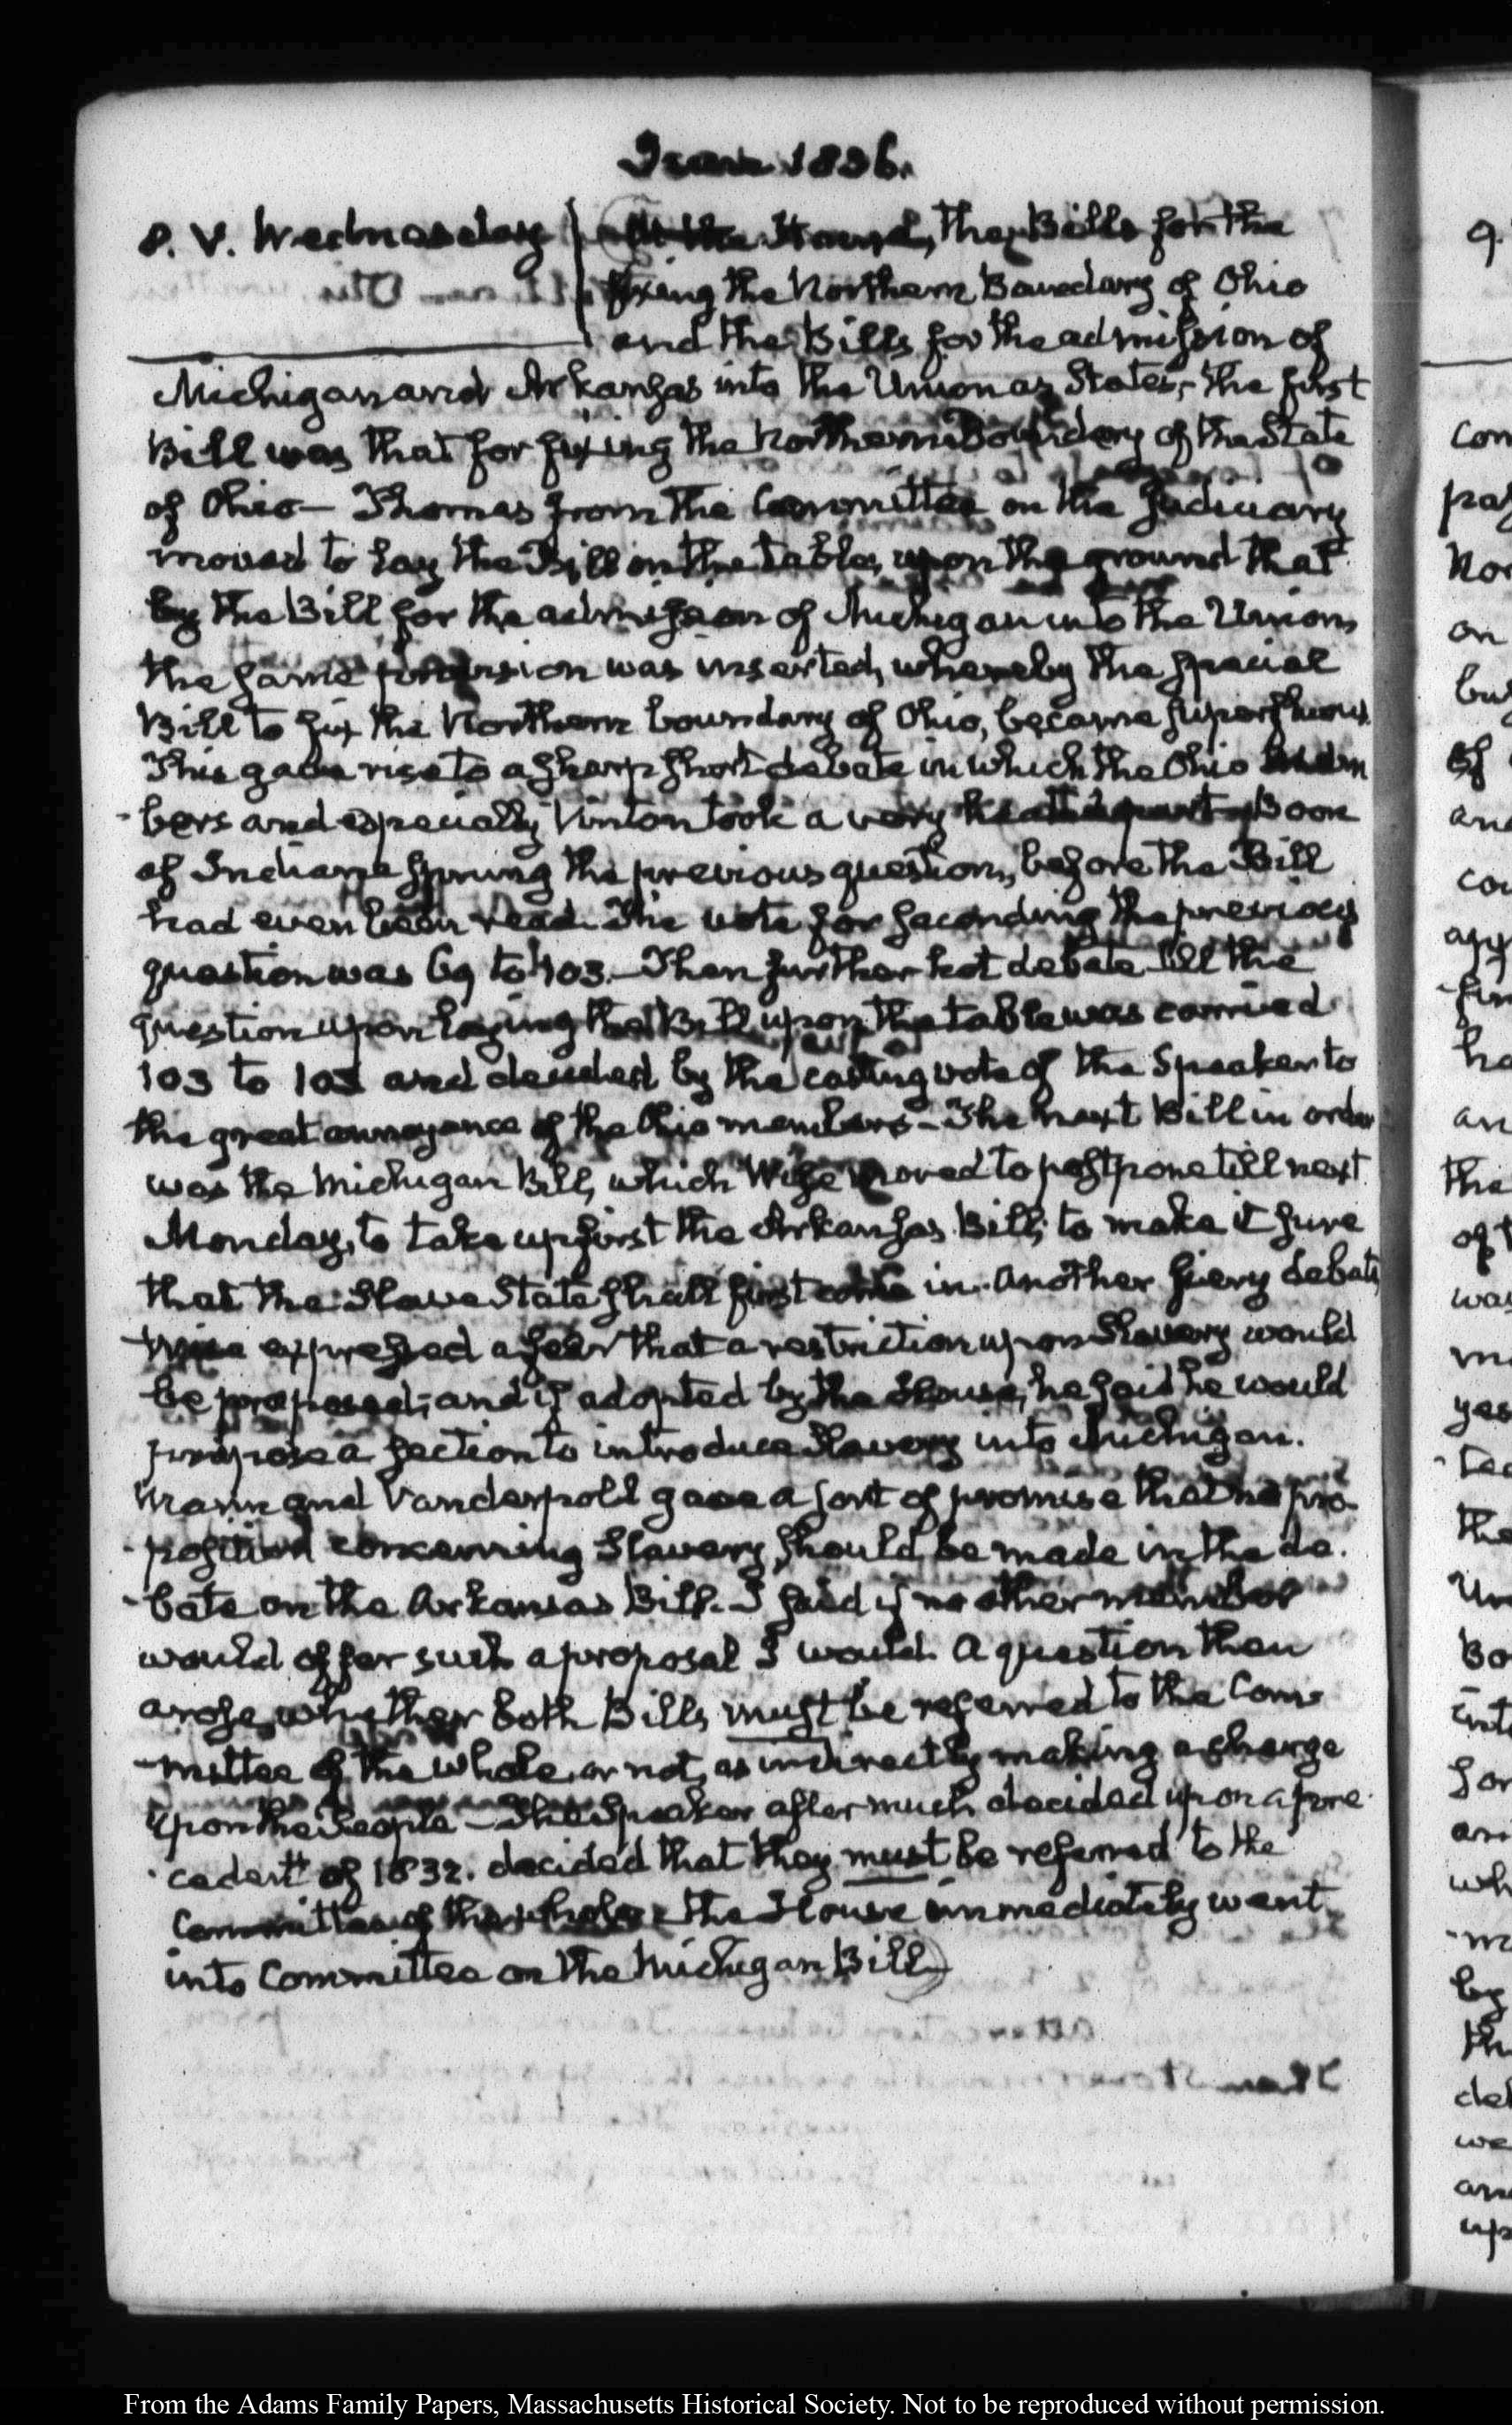 June 1836.
8. V. Wednesday At the House, the Bills for the
fixing the Northern Boundary of Ohio
and the Bills for the admission of
Michigan and Arkansas into the Union as States, the first
Bill was that for fixing the Northern Boundary of the State
of Ohio— Thomas from the Committee on the Judiciary
moved to lay the Bill on the table, upon the ground that
by the Bill for the admission of Michigan into the Union,
the same provision was inserted, whereby the special
Bill to fix the Northern boundary of Ohio, became superfluous.
This gave rise to a sharp short debate in which the Ohio mem
-bers and especially Vinton took a very heated part. Boon
of Indiana sprung the previous question, before the Bill
had even been read. The vote for seconding the previous
question was 69 to 103.— Then further hot debate till the
question upon laying the Bill upon the table was carried
103 to 103 and decided by the casting vote of the Speaker to
the great annoyance of the Ohio members— The next Bill in order
was the Michigan Bill, which Wise moved to postpone till next
Monday, to take up first the Arkansas Bill, to make it sure
that the Slave State shall first come in. Another fiery debate
Wise expressed a fear that a restriction upon Slavery would
be proposed; and if adopted by the House, he said he would
propose a section to introduce Slavery into Michigan.
Mann and Vanderpoll gave a sort of promise that no pro-
-position concerning Slavery, should be made in the de-
-bate on the Arkansas Bill. I said if no other member
would offer such a proposal I would. A question then
arose, whether both Bills must be referred to the Com-
-mittee of the whole or not, as indirectly making a charge
upon the People— The Speaker after much decided upon a pre-
-cedent of 1832. decided that they must be referred to the
Committee of the whole the House immediately went
into Committee on the Michigan Bill
9.
Con
on
and
the
was
by
From the Adams Family Papers, Massachusetts Historical Society. Not to be reproduced without permission.